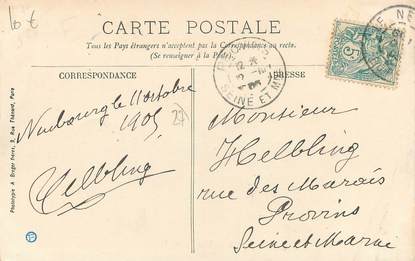 10 €
CARTE POSTALE
Tous les Pays étrangers n'acceptent pas la Correspondance au recto.
(Se renseigner à la Poste).
CORRESPONDANCE
ADRESSE
SEINE ET M
5
Neubourg le 11 octobre
1905
27
Helbling
Monsieur
Helbling
rue des Marais
Provins
Seine et Marne
Phototypie A. Breger Frères, 9, Rue Thénard, Paris